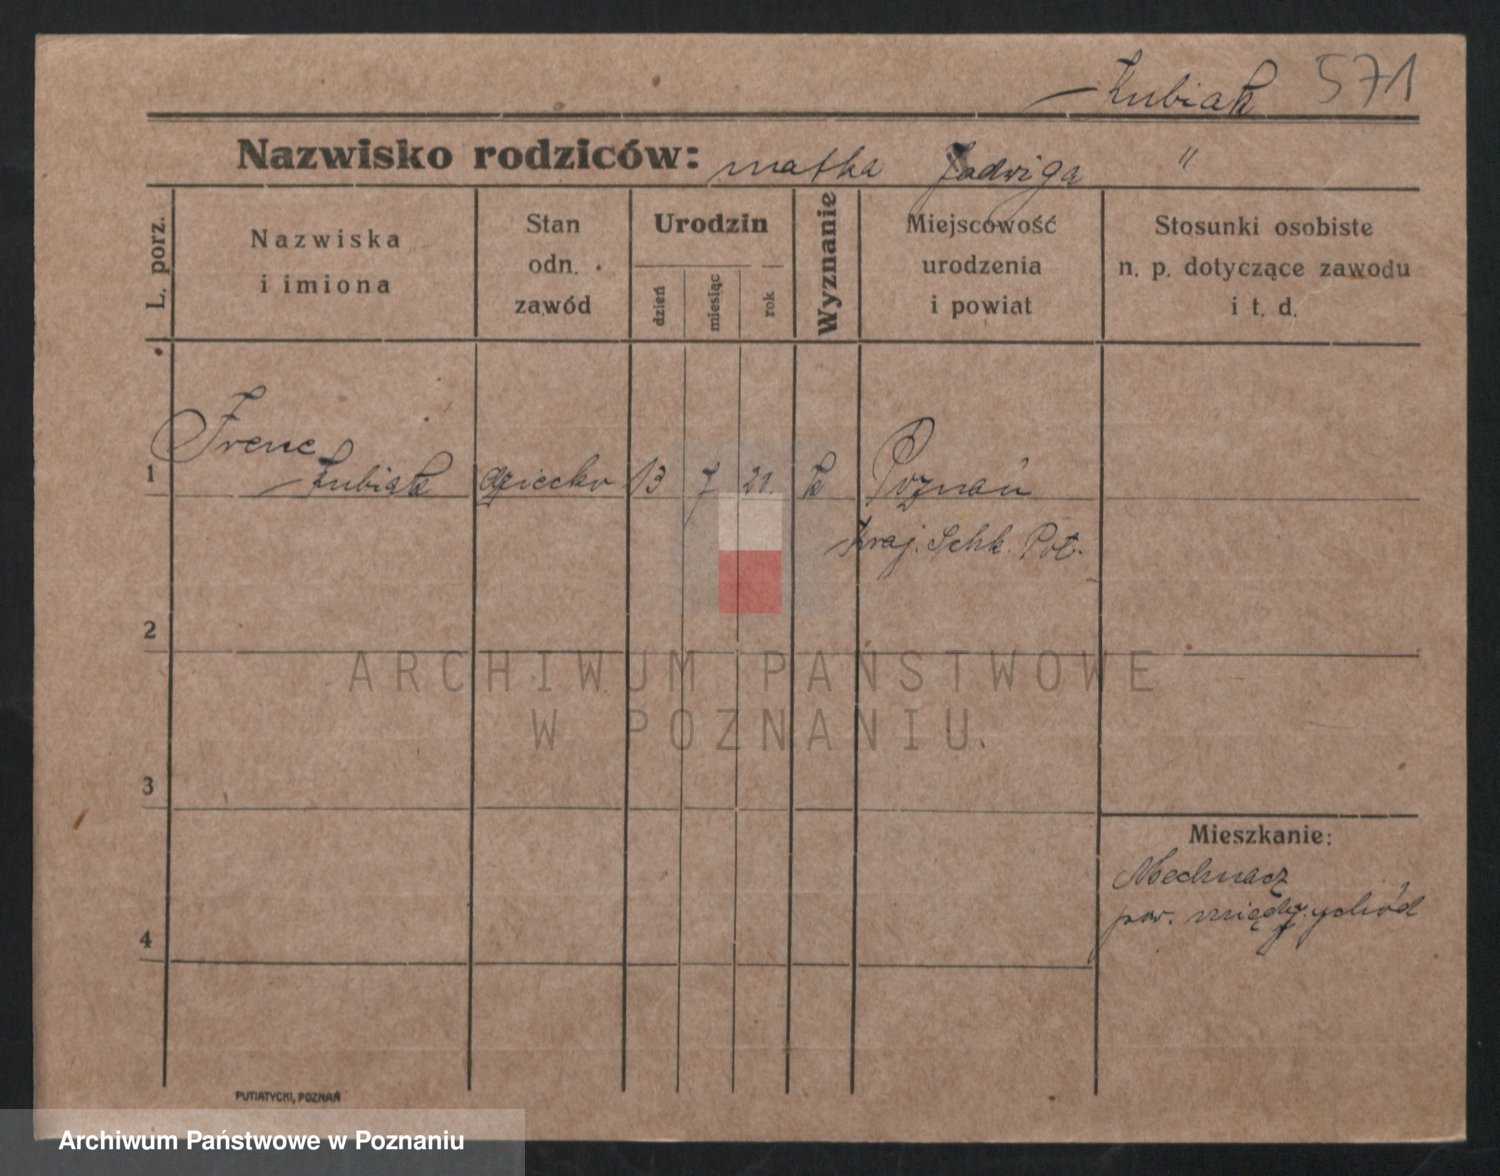 Kubiak 571
Nazwisko rodziców: matka Jadwiga "
L. porz.
Nazwiska
i imiona
Stan
odn.
zawód
Urodzin
dzień
miesiąc
rok
Wyznanie
Miejscowość
urodzenia
i powiat
Stosunki osobiste
n. p. dotyczące zawodu
i t. d.
Irene
1 Kubiak dziecko 13 7 21. k Poznań
Kraj. Schk. Pot.
2
3
4
Mieszkanie:
pow. międzychód
PUTIATYCKI, POZNAŃ
ARCHIWUM PAŃSTWOWE
W POZNANIU
Archiwum Państwowe w Poznaniu